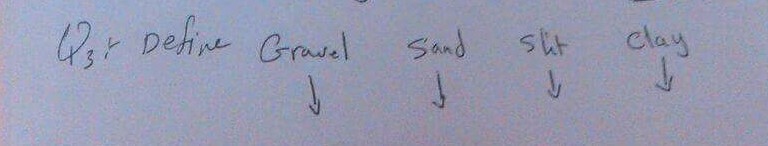 Q3: Define Gravel Sand Silt Clay
↓ ↓ ↓ ↓